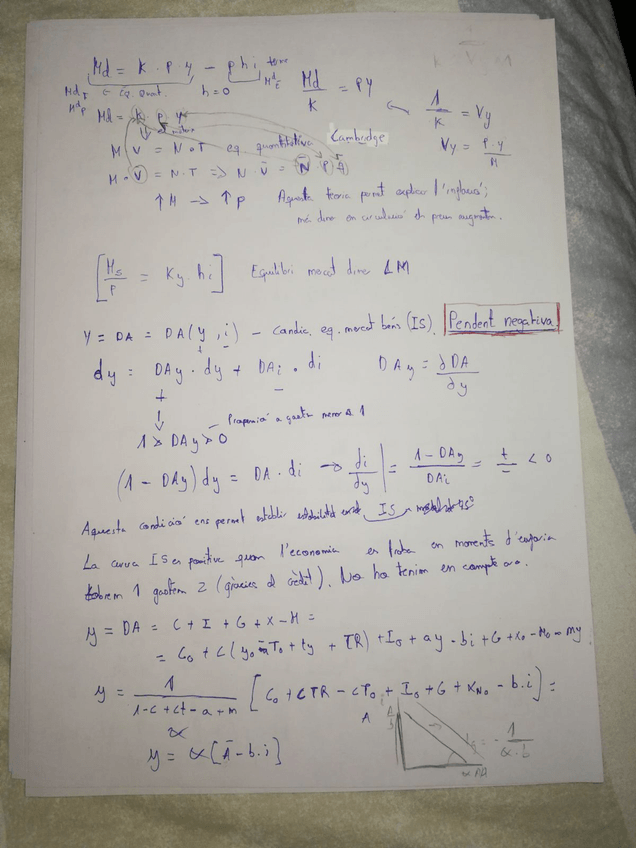 Md = K · P · y − p h i
Eq. Quant. h=0
Md/K = PY
1/K = Vy
Md = K P y
Vy = P·y/M
M V = N · T eq quantitativa Cambridge
M · V̄ = N · T => N · V̄ = N̄ · P
↑ M → ↑ P Aquesta teoria permet explicar l'inflació;
més diner en circulació els preus augmenten.
[Ms/P = Ky · hi] Equilibri mercat diner LM
Y = DA = DA(y, i) − Condic. eq. mercat béns (IS). Pendent negativa
+ −
dy = DAy · dy + DAi · di DAy = ∂DA/∂y
+ −
Propensió a gastar menor a 1
1 > DAy > 0
(1 − DAy) dy = DA · di → di/dy | = 1 − DAy / DAi = +/− < 0
Aquesta condició ens permet establir estabilitat IS
La curva IS es positiva quan l'economia es troba en moments d'eufòria
1 gastem 2 (gràcies al crèdit). No ho tenim en compte ara.
y = DA = C + I + G + X − M =
= C₀ + C( + ty + TR) + I₀ + ay − bi + G + X₀ − M₀ − my
y = 1 / 1−c+ct−a+m [C₀ + CTR − cT₀ + I₀ + G + XN₀ − b·i] =
α
y = α[Ā − b·i]
= − 1/α·b